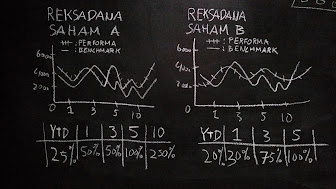 REKSADANA
SAHAM A
: PERFORMA
: BENCHMARK
6000
4000
2000
0
1 3 5 10
YTD 1 3 5 10
25% 50% 50% 100% 250%
REKSADANA
SAHAM B
: PERFORMA
: BENCHMARK
6000
2000
0
1 3 5 10
YTD 1 3 5
20% 30% 75% 100%